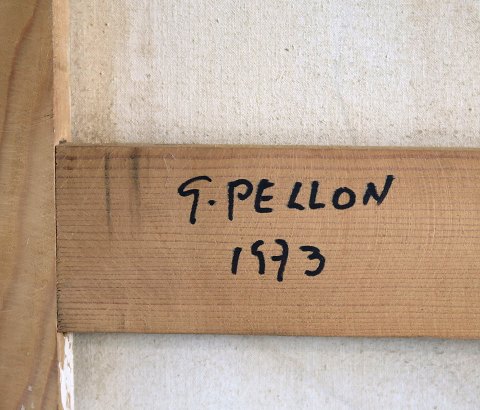 G. PELLON
1973